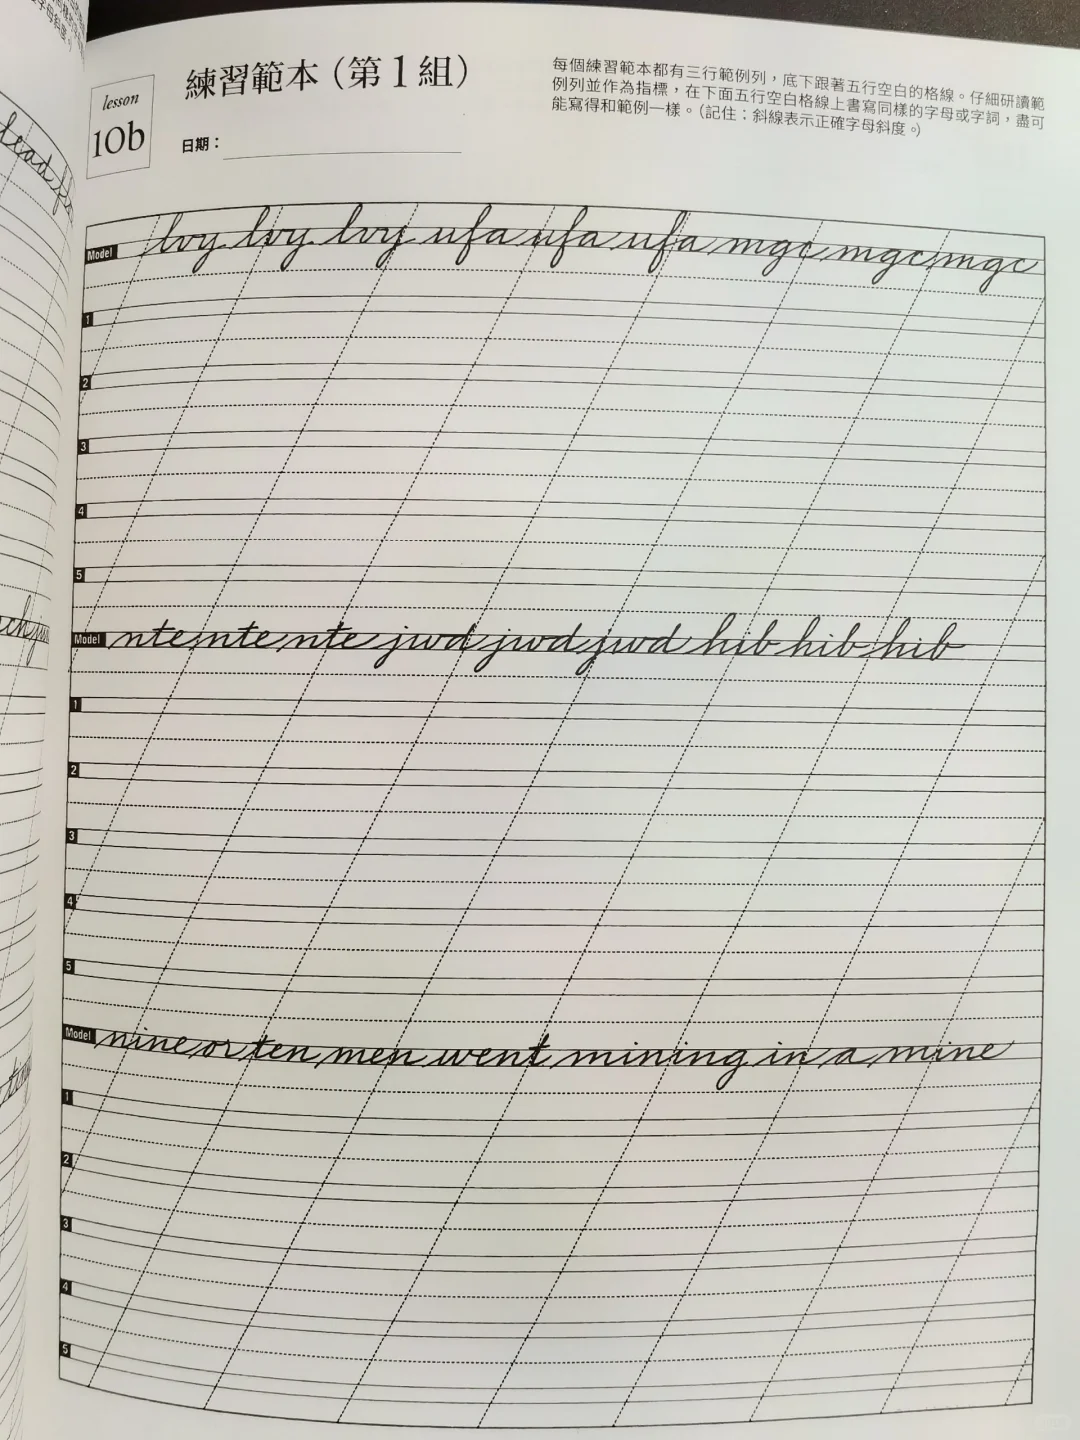 lesson
10b
練習範本（第1組）
日期：
每個練習範本都有三行範例列，底下跟著五行空白的格線。仔細研讀範
例列並作為指標，在下面五行空白格線上書寫同樣的字母或字詞，盡可
能寫得和範例一樣。（記住：斜線表示正確字母斜度。）
Model lvy lvy lvy ufa ufa ufa mgc mgc mgc
1
2
3
4
5
Model nte nte nte jwd jwd jwd hib hib hib
1
2
3
4
5
Model nine or ten men went mining in a mine
1
2
3
4
5
lead